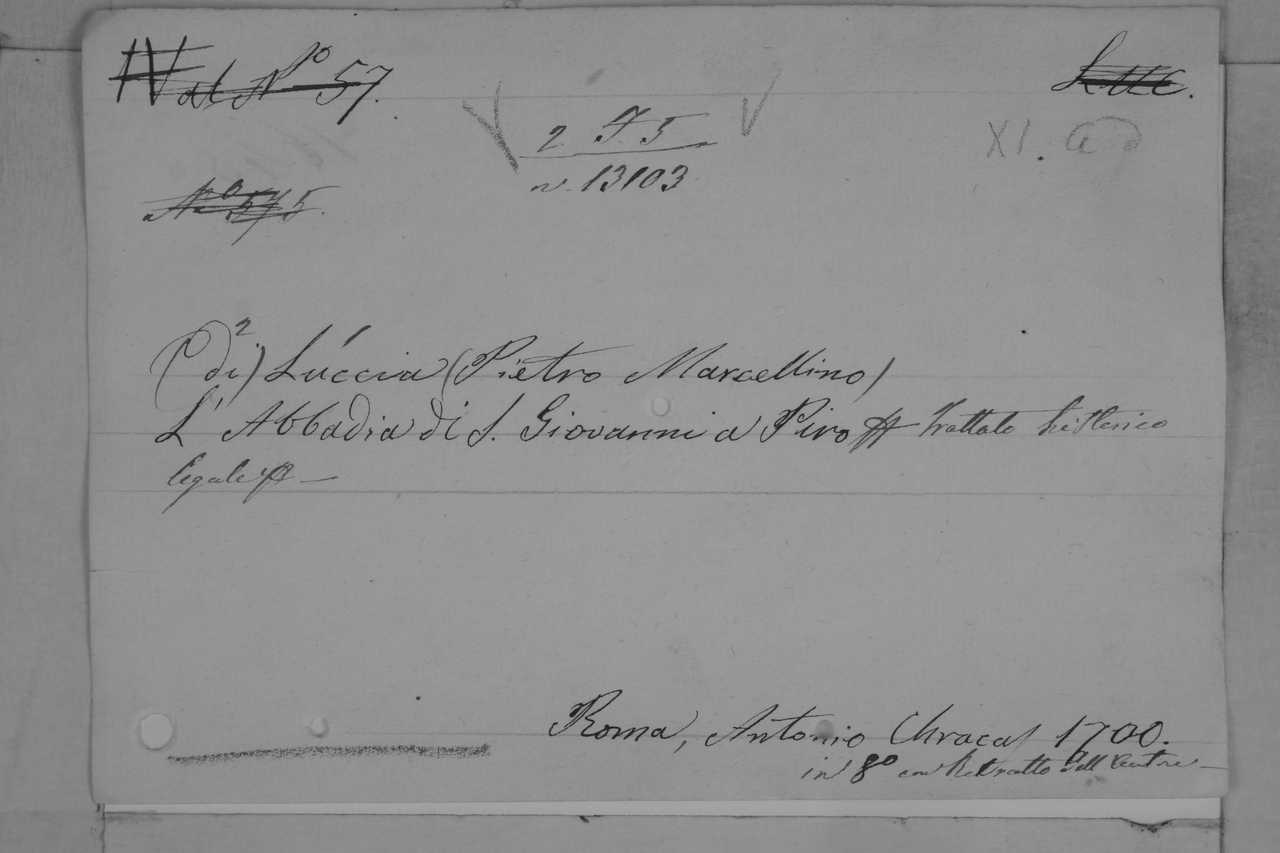 al N.º 57.
2 F 5
n. 13103
XI.
Nº 575.
2
(di) Luccia (Pietro Marcellino)
L' Abbadia di S. Giovanni a Piro Trattato historico
legale —
Roma, Antonio Chracas 1700.
in 8º con Ritratto dell'Autore —